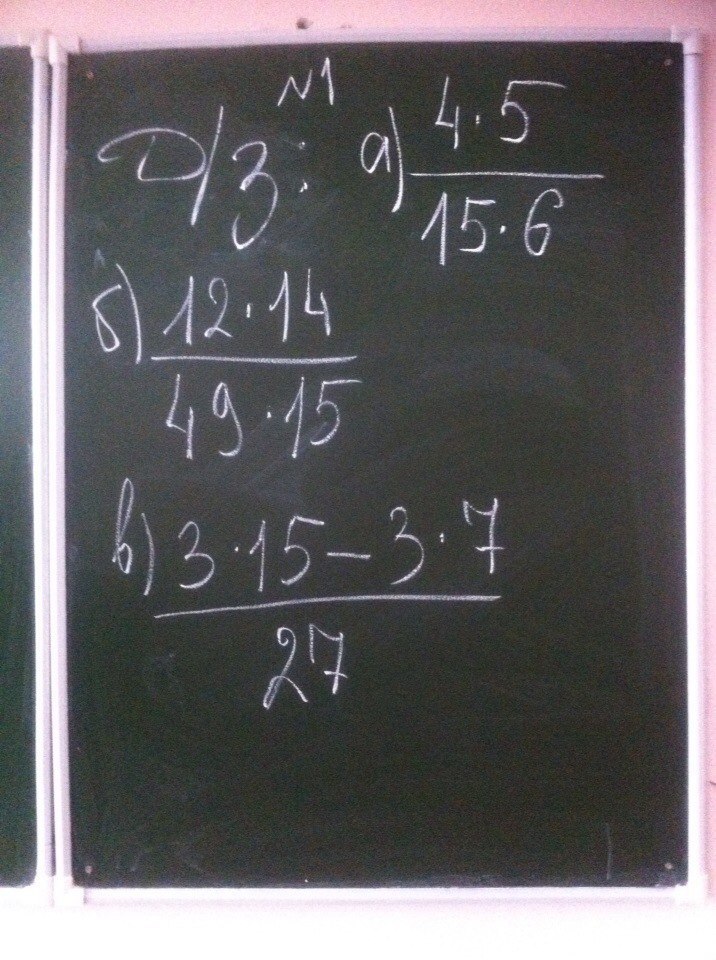 №1
Д/З: а) 4·5
15·6
б) 12·14
49·15
в) 3·15-3·7
27